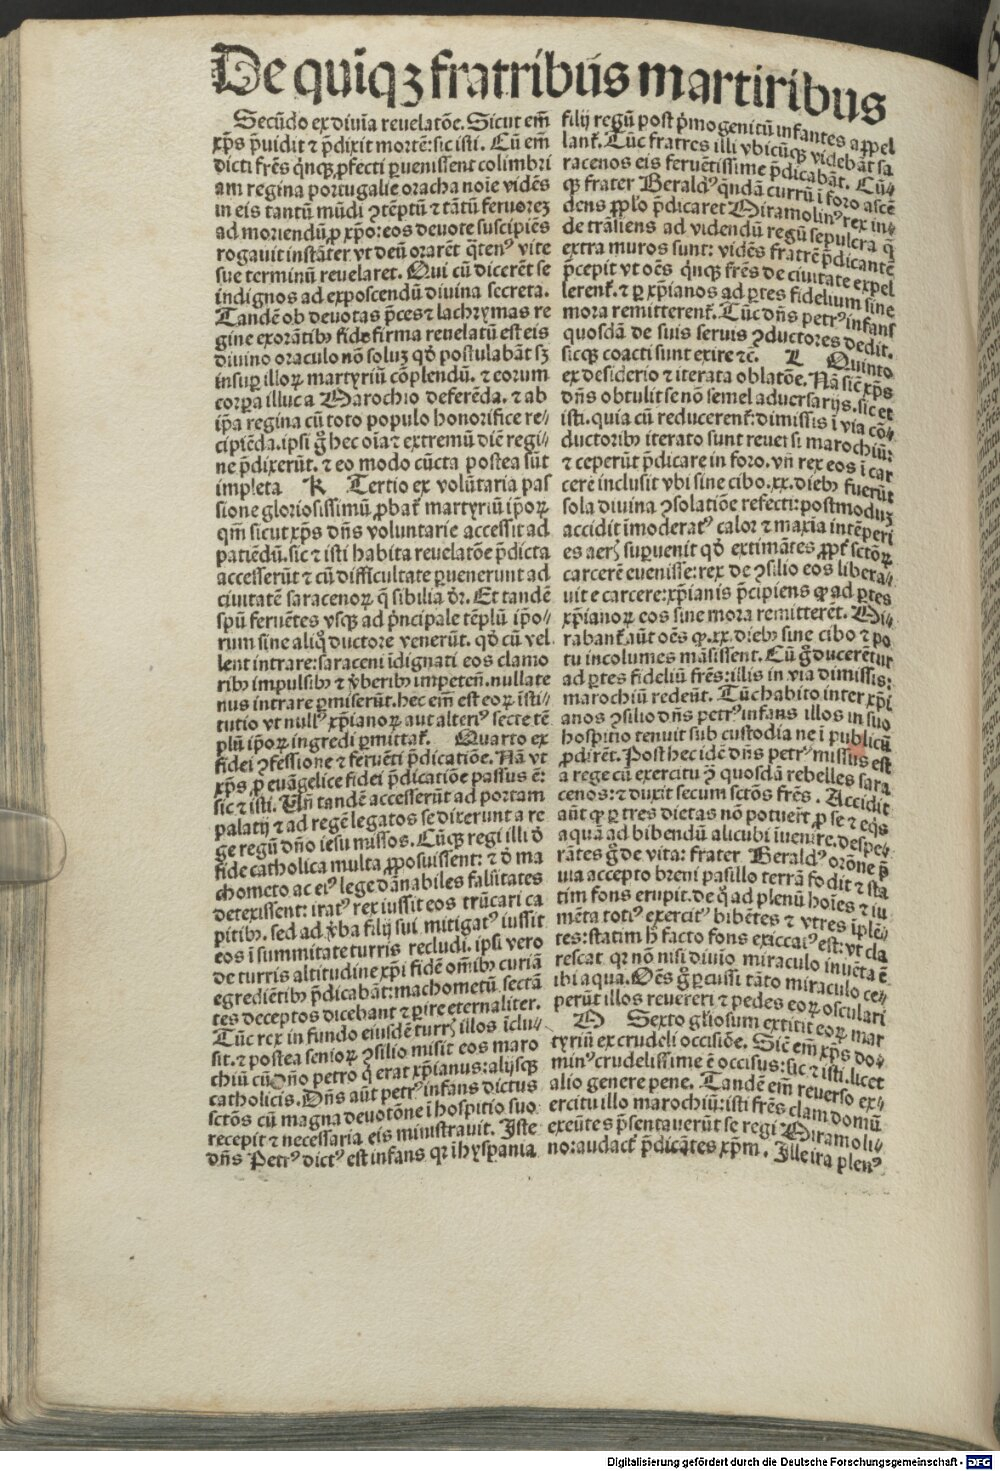 De quiqꝫ fratribus martiribus
Secūdo ex diuīa reuelatōe. Sicut em̄
xp̄s p̄uidit ⁊ p̄dixit mortē: sic isti. Cū em̄
dicti frēs qͥnqꝫ ꝓfecti ꝑuenissent colimbri
am regina portugalie oracha noīe vidēs
in eis tantū mūdi ꝯtēptū ⁊ tātū feruorez
ad moriendū ꝓ xp̄o: eos deuote suscipiēs
rogauit instāter vt deū orarēt qͣtenꝰ vite
sue terminū reuelaret. Qui cū dicerēt se
indignos ad exposcendū diuina secreta.
Tandē ob deuotas p̄ces ⁊ lachrymas re
gine exorātibꝫ fide firma reuelatū est eis
diuino oraculo nō soluꝫ qd̄ postulabāt sꝫ
insuꝑ illoꝝ martyriū cōplendū. ⁊ eorum
corꝑa illuc a Marochio deferēda. ⁊ ab
ip̄a regina cū toto populo honorifice re⸗
cipiēda. ipsi gͦ hec oīa ⁊ extremū diē regi⸗
ne p̄dixerūt. ⁊ eo modo cūcta postea sūt
impleta K Tertio ex volūtaria pas
sione gloriosissimū ꝓbat᷑ martyriū ip̄oꝝ
qm̄ sicut xp̄s dn̄s voluntarie accessit ad
patiēdū. sic ⁊ isti habita reuelatōe p̄dicta
accesserūt ⁊ cū difficultate ꝑuenerunt ad
ciuitatē saracenoꝝ q̄ sibilia dr̄. Et tandē
sp̄u feruētes vsqꝫ ad p̄ncipale tēplū ip̄o⸗
rum sine aliqͦ ductore venerūt. qd̄ cū vel
lent intrare: saraceni īdignati eos clamo
ribꝫ impulsibꝫ ⁊ v̄beribꝫ impeteñ. nullate
nus intrare ꝑmiserūt. hec em̄ est eoꝝ īsti⸗
tutio vt nullꝰ xp̄ianoꝝ aut alteriꝰ secte tē
plū ip̄oꝝ ingredi ꝑmittat᷑. Quarto ex
fidei ꝯfessione ⁊ feruēti p̄dicatiōe. Nā vt
xp̄s ꝓ euāgelice fidei p̄dicatiōe passus ē:
sic ⁊ isti. Uñ tandē accesserūt ad portam
palatij ⁊ ad regē legatos se dixerunt a re
ge regū dn̄o iesu missos. Cūqꝫ regi illi d̄
fide catholica multa ꝓposuissent: ⁊ d̄ ma
chometo ac eiꝰ lege dānabiles falsitates
detexissent: iratꝰ rex iussit eos trūcari ca
pitibꝫ. sed ad v̄ba filij sui mitigatꝰ iussit
eos ī summitate turris recludi. ipsi vero
de turris altitudine xp̄i fidē om̄ibꝫ curiā
egrediētibꝫ p̄dicabāt: machometū sectā
tes deceptos dicebant ⁊ ꝑire eternaliter.
Tūc rex in fundo eiusdē turrꝭ illos īclu⸗
sit. ⁊ postea senioꝝ ꝯsilio misit eos maro
chiū cū Dn̄o petro qͥ erat xp̄ianus: alijsqꝫ
catholicis. Dn̄s aūt petrꝰ infans dictus
sctōs cū magna deuotōne ī hospitio suo
recepit ⁊ necessaria eis ministrauit. Iste
dn̄s Petrꝰ dictꝰ est infans qꝛ ī hyspania
filij regū post p̄mogenitū infantes appel
lant᷑. Tūc fratres illi vbicūqꝫ videbāt sa
racenos eis feruētissime p̄dicabāt. Cū⸗
qꝫ frater Beraldꝰ qͥndā currū ī foro ascē
dens ꝓplo p̄dicaret Miramolinꝰ rex in⸗
de trāsiens ad videndū regū sepulcra q̄
extra muros sunt: vidēs fratrē p̄dicantē
p̄cepit vt oēs qͥnqꝫ frēs de ciuitate expel
lerent᷑. ⁊ ꝑ xp̄ianos ad ꝑtes fidelium sine
mora remitterent᷑. Tūc dn̄s petrꝰ infans
quosdā de suis seruis ꝯductores dedit.
sicqꝫ coacti sunt exire ⁊c̄. L Quinto
ex desiderio ⁊ iterata oblatōe. Nā sic̄ xp̄s
dn̄s obtulit se nō semel aduersarijs. sic et
isti. quia cū reducerent᷑: dimissis ī via cō⸗
ductoribꝫ iterato sunt reuersi marochiū:
⁊ ceperūt p̄dicare in foro. vñ rex eos ī car
cerē inclusit vbi sine cibo. xx. diebꝫ fuerūt
sola diuina ꝯsolatiōe refecti: postmoduꝫ
accidit īmoderatꝰ calor ⁊ maxīa intēperi
es aerꝭ suꝑuenit qd̄ extimātes ꝓpt᷑ sctōꝝ
carcerē euenisse: rex de ꝯsilio eos libera⸗
uit e carcere: xp̄ianis p̄cipiens ꝙ ad ꝑtes
xp̄ianoꝝ eos sine mora remitterēt. Mi⸗
rabant᷑ aūt oēs ꝙ. xx. diebꝫ sine cibo ⁊ po
tu incolumes māsissent. Cū gͦ ducerētur
ad ꝑtes fideliū frēs: illis in via dimissis:
marochiū redeūt. Tūc habito inter xp̄i
anos ꝯsilio dn̄s petrꝰ infans illos in suo
hospitio tenuit sub custodia ne ī publicū
ꝓdirēt. Post hec idē dn̄s petrꝰ missus est
a rege cū exercitu ꝯ̄ quosdā rebelles sara
cenos: ⁊ duxit secum sctōs frēs. Accidit
aūt ꝙ ꝑ tres dietas nō potuer̄t ꝓ se ⁊ eqͥs
aquā ad bibendū alicubi īuenire. despe⸗
rātes gͦ de vita: frater Beraldꝰ orōne p̄
uia accepto breui paxillo terrā fodit ⁊ sta
tim fons erupit. de qͦ ad plenū hoīes ⁊ iu
mēta totiꝰ exercitꝰ bibētes ⁊ vtres īplē⸗
tes: statim hͦ facto fons exiccatꝰ est: vt cla
rescat qꝛ nō nisi diuīo miraculo inuēta ē
ibi aqua. Oēs gͦ ꝑcussi tāto miraculo ce⸗
perūt illos reuereri ⁊ pedes eoꝝ osculari
M Sexto gl̄iosum extitit eoꝝ mar
tyriū ex crudeli occisiōe. Sic̄ em̄ xp̄s do⸗
minꝰ crudelissime ē occisus: sic ⁊ isti. licet
alio genere pene. Tandē em̄ reuerso ex⸗
ercitu illo marochiū: isti frēs clam domū
exeūtes p̄sentauerūt se regi Miramoli⸗
no: audact᷑ p̄dicātes xp̄m. Ille ira plenꝰ
Digitalisierung gefördert durch die Deutsche Forschungsgemeinschaft - DFG